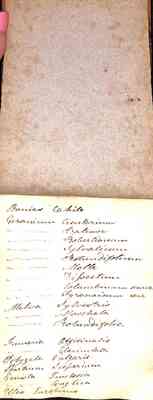 Bunias Cakile
Geranium Cicutarium
Pratense
Robertianum
Sylvaticum
Rotundifolium
Molle
Dissectum
Columbinum
Pyrenaicum
Malva Sylvestris
Moschata
Rotundifolia
Fumaria Officinalis
Claviculata
Polygala Vulgaris
Spartium Scoparium
Genista Tinctoria
Anglica
Ulex Europaeus